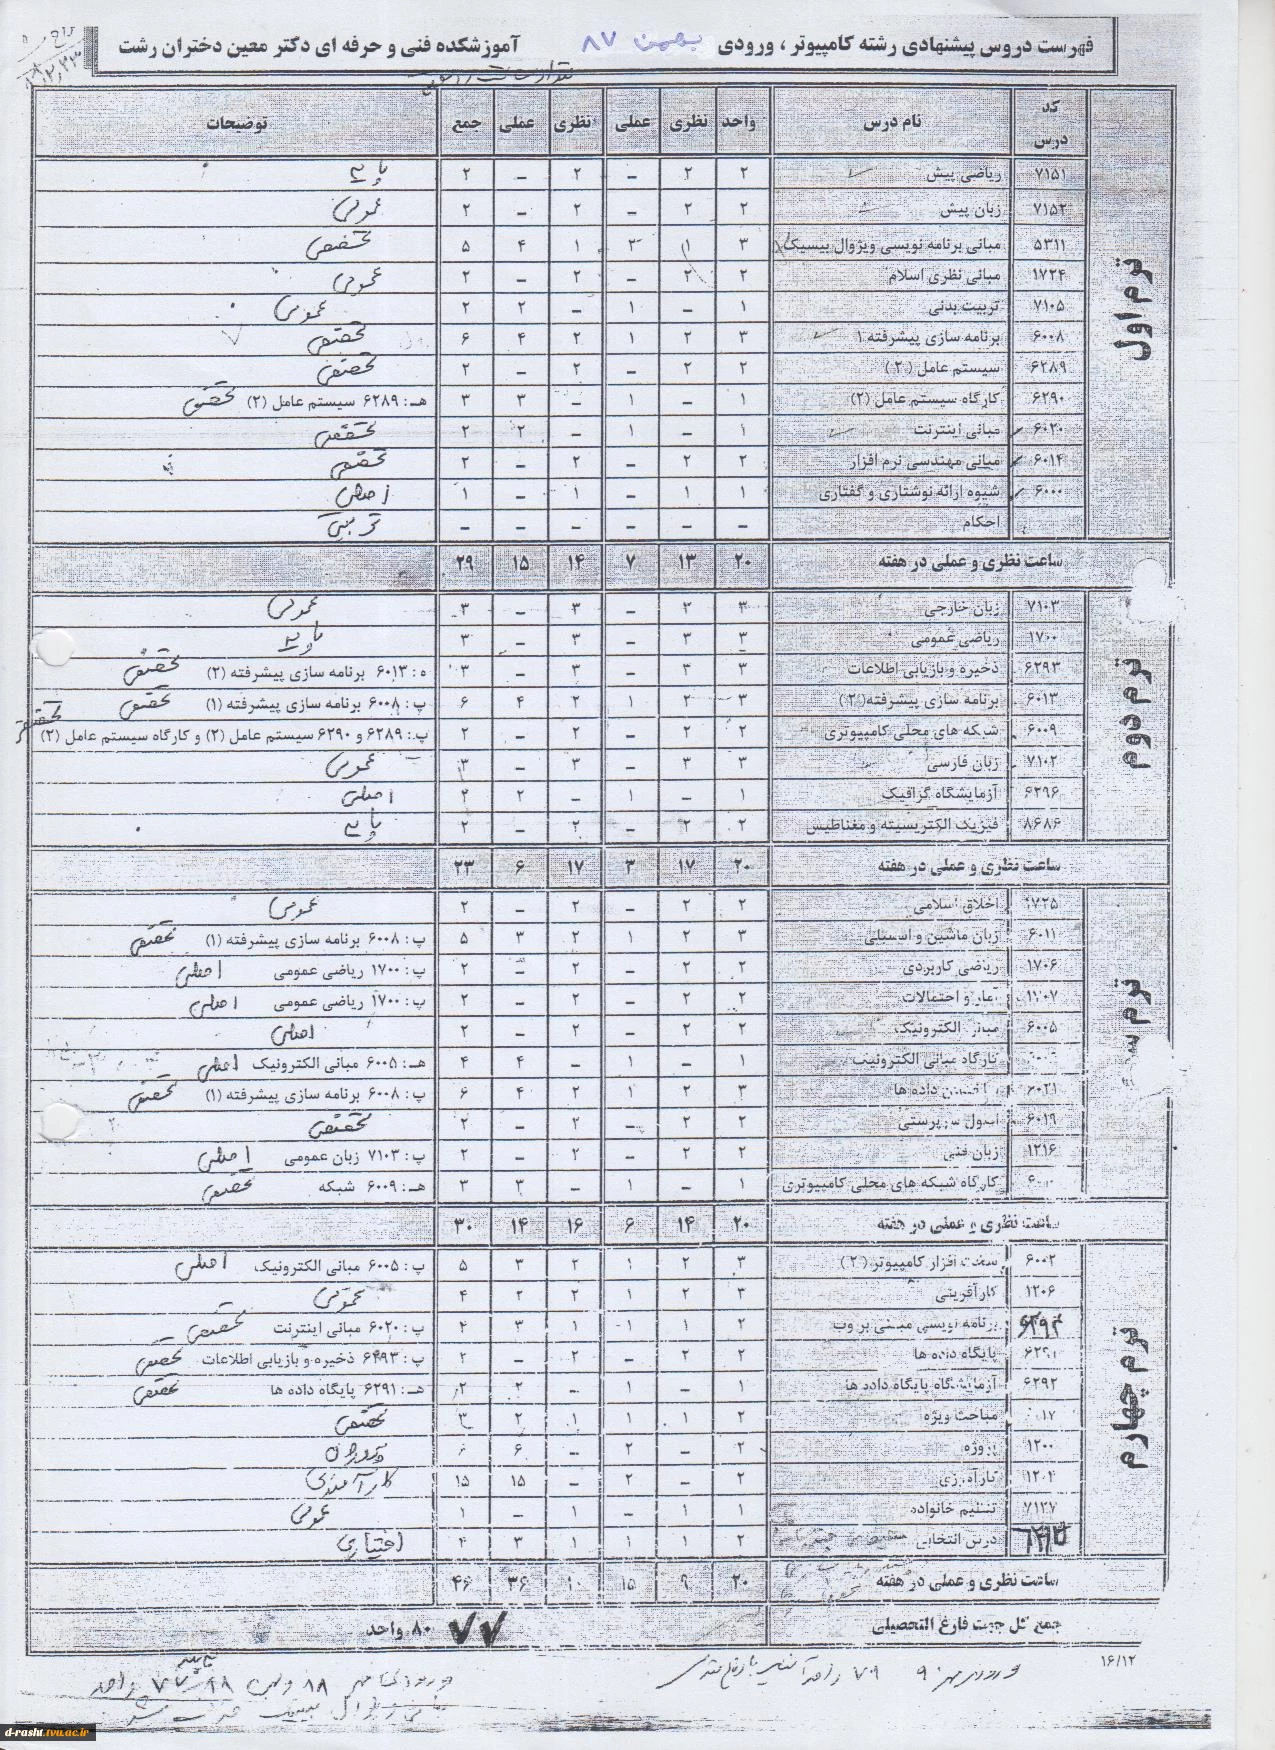 فهرست دروس پیشنهادی رشته کامپیوتر ، ورودی بهمن ۸۷ آموزشکده فنی و حرفه ای دکتر معین دختران رشت
کد درس نام درس واحد نظری عملی نظری عملی جمع توضیحات
ترم اول
۷۱۵۱ ریاضی پیش ۲ ۲ – ۲ – ۲ پایه
۷۱۵۲ زبان پیش ۲ ۲ – ۲ – ۲ عمومی
۵۳۱۱ مبانی برنامه نویسی ویژوال بیسیک ۳ ۱ ۲ ۱ ۴ ۵ تخصصی
۱۷۲۴ مبانی نظری اسلام ۲ ۲ – ۲ – ۲ عمومی
۷۱۰۵ تربیت بدنی ۱ – ۱ – ۲ ۲ عمومی
۶۰۰۸ برنامه سازی پیشرفته ۱ ۳ ۲ ۱ ۲ ۴ ۶ تخصصی
۶۲۸۹ سیستم عامل (۲) ۲ ۲ – ۲ – ۲ تخصصی
۶۲۹۰ کارگاه سیستم عامل (۲) ۱ – ۱ – ۳ ۳ هـ: ۶۲۸۹ سیستم عامل (۲) تخصصی
۶۰۲۰ مبانی اینترنت ۱ – ۱ – ۲ ۲ تخصصی
۶۰۱۴ مبانی مهندسی نرم افزار ۲ ۲ – ۲ – ۲ تخصصی
۶۰۰۰ شیوه ارائه نوشتاری و گفتاری ۱ ۱ – ۱ – ۱ اصلی
احکام – – – – – – تربیتی
ساعت نظری و عملی در هفته ۲۰ ۱۳ ۷ ۱۴ ۱۵ ۲۹
ترم دوم
۷۱۰۳ زبان خارجی ۳ ۳ – ۳ – ۳ عمومی
۱۷۰۰ ریاضی عمومی ۳ ۳ – ۳ – ۳ پایه
۶۲۹۳ ذخیره و بازیابی اطلاعات ۳ ۳ – ۳ – ۳ ه: ۶۰۱۳ برنامه سازی پیشرفته (۲) تخصصی
۶۰۱۳ برنامه سازی پیشرفته(۲) ۳ ۲ ۱ ۲ ۴ ۶ پ: ۶۰۰۸ برنامه سازی پیشرفته (۱) تخصصی
۶۰۰۹ شبکه های محلی کامپیوتری ۲ ۲ – ۲ – ۲ پ: ۶۲۸۹ و ۶۲۹۰ سیستم عامل (۲) و کارگاه سیستم عامل (۲) تخصصی
۷۱۰۲ زبان فارسی ۳ ۳ – ۳ – ۳ عمومی
۶۲۹۶ آزمایشگاه گرافیک ۱ – ۱ – ۲ ۲ اصلی
۸۶۸۶ فیزیک الکتریسیته و مغناطیس ۲ ۲ – ۲ – ۲ پایه
ساعت نظری و عملی در هفته ۲۰ ۱۷ ۳ ۱۷ ۶ ۲۳
ترم س
۱۷۲۵ اخلاق اسلامی ۲ ۲ – ۲ – ۲ عمومی
۶۰۱۱ زبان ماشین و اسمبلی ۳ ۲ ۱ ۲ ۳ ۵ پ: ۶۰۰۸ برنامه سازی پیشرفته (۱) تخصصی
۱۷۰۶ ریاضی کاربردی ۲ ۲ – ۲ – ۲ پ: ۱۷۰۰ ریاضی عمومی اصلی
۱۷۰۷ آمار و احتمالات ۲ ۲ – ۲ – ۲ پ: ۱۷۰۰ ریاضی عمومی اصلی
۶۰۰۵ مبانی الکترونیک ۲ ۲ – ۲ – ۲ اصلی
کارگاه مبانی الکترونیک ۱ – ۱ – ۴ ۴ هـ: ۶۰۰۵ مبانی الکترونیک اصلی
۶۰۲۱ داده ها ۳ ۲ ۱ ۲ ۴ ۶ پ: ۶۰۰۸ برنامه سازی پیشرفته (۱) تخصصی
۶۰۱۹ اصول سرپرستی ۲ ۲ – ۲ – ۲ تخصصی
۱۲۱۶ زبان فنی ۲ ۲ – ۲ – ۲ پ: ۷۱۰۳ زبان عمومی اصلی
کارگاه شبکه های محلی کامپیوتری ۱ – ۱ – ۳ ۳ هـ: ۶۰۰۹ شبکه تخصصی
ساعت نظری و عملی در هفته ۲۰ ۱۴ ۶ ۱۶ ۱۴ ۳۰
ترم چهارم
۶۰۰۲ سخت افزار کامپیوتر (۲) ۳ ۲ ۱ ۲ ۳ ۵ پ: ۶۰۰۵ مبانی الکترونیک اصلی
۱۲۰۶ کارآفرینی ۳ ۲ ۱ ۲ ۲ ۴ عمومی
۶۲۹۴ برنامه نویسی مبتنی بر وب ۲ ۱ ۱ ۱ ۳ ۴ پ: ۶۰۲۰ مبانی اینترنت تخصصی
۶۲۹۱ پایگاه داده ها ۲ ۲ – ۲ – ۲ پ: ۶۲۹۳ ذخیره و بازیابی اطلاعات تخصصی
۶۲۹۲ آزمایشگاه پایگاه داده ها ۱ – ۱ – ۲ ۲ هـ: ۶۲۹۱ پایگاه داده ها تخصصی
۱۷ مباحث ویژه ۲ ۱ ۱ ۱ ۲ ۳ تخصصی
۱۲۰۰ پروژه ۲ – ۲ – ۶
۱۲۰۴ کارآموزی ۲ – ۲ – ۱۵ ۱۵ کارآموزی
۷۱۲۷ تنظیم خانواده ۱ ۱ – ۱ – ۱ عمومی
درس انتخابی ۲ ۱ ۱ ۱ ۳ ۴ اختیاری
ساعت نظری و عملی در هفته ۲۰ ۹ ۱۵ ۱۰ ۳۶ ۴۶
جمع کل جهت فارغ التحصیلی ۸۰ واحد ۷۷
۱۶/۱۲
d-rasht.tvu.ac.ir